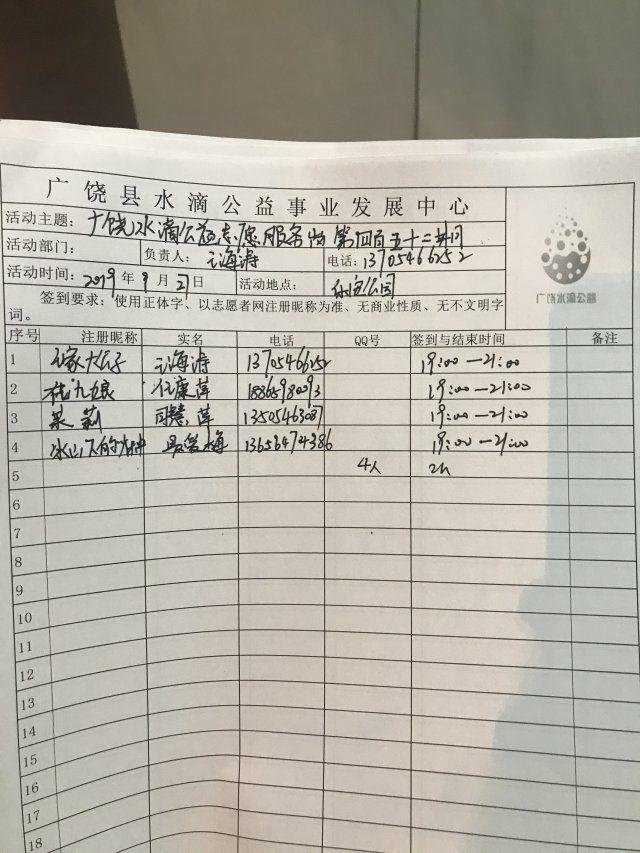 广饶县水滴公益事业发展中心
活动主题：广饶水滴公益志愿服务 第四百五十二期
活动部门： 负责人： 海涛 电话：13705466252
活动时间：2019年9月21日 活动地点： 公园
签到要求：使用正体字、以志愿者网注册昵称为准、无商业性质、无不文明字
词。
广饶水滴公益
序号 注册昵称 实名 电话 QQ号 签到与结束时间 备注
1 大公子 海涛 13705466252 19:00—21:00
2 九娘 任康萍 18865980093 19:00—21:00
3 茉莉 萍 13505463087 19:00—21:00
4 冰山下的 梅 13656474386 19:00—21:00
5 4人 2h
6
7
8
9
10
11
12
13
14
15
16
17
18